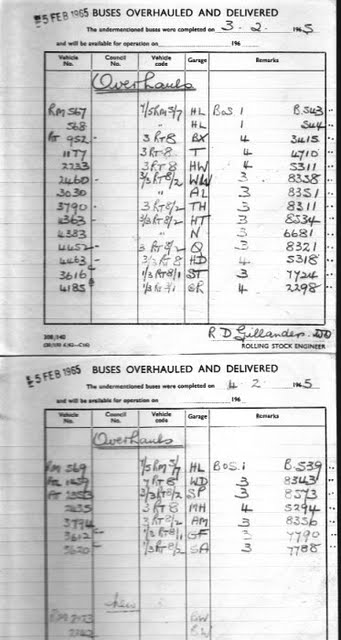 5 FEB 1965 BUSES OVERHAULED AND DELIVERED
The undermentioned buses were completed on 3. 2. 1965
and will be available for operation on 196
Vehicle No. Council No. Vehicle code Garage Remarks
Overhauls
RM 567 7/5RM5/7 HL BOS. 1 B.543
568 " HL 1 544
RT 952 3 RT8 BX 4 3415
1177 3 RT8 T 4 4710
2233 3 RT8 HW 4 5311
2460 3/3 RT8/2 WW 3 8338
3030 " AL 3 8351
3790 3 RT8/2 TH 3 8311
4363 3/3 RT8/2 HT 3 8534
4383 " N 3 6681
4452 3 RT8/2 Q 3 8321
4463 3/3 RT8 HD 4 5318
3616 1/3 RT8/1 ST 3 7724
4185 GR 4 2298
R D Gillanders
ROLLING STOCK ENGINEER
5 FEB 1965 BUSES OVERHAULED AND DELIVERED
The undermentioned buses were completed on 4 2 1965
and will be available for operation on 196
Vehicle No. Council No. Vehicle code Garage Remarks
Overhauls
RM 569 7/5RM5/7 HL BOS. 1 B.539
7 RT8 WD 3 8343
3/3RT8/2 SP 3 8573
2635 3 RT8 MH 4 5294
3794 3 RT8/2 AM 3 8356
3612 GF 3 7790
3620 1/3RT8/2 SA 3 7788